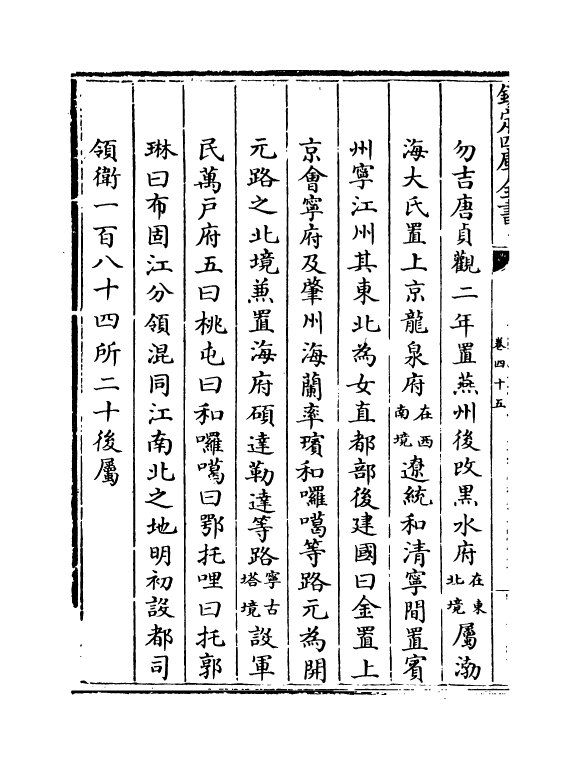 欽定四庫全書
卷四十五
勿吉唐貞觀二年置燕州後改黑水府在東北境屬渤
海大氏置上京龍泉府在西南境遼統和清寧間置賓
州寧江州其東北為女直都部後建國曰金置上
京會寧府及肇州海蘭率璸和囉噶等路元為開
元路之北境兼置海府碩達勒達等路寧古塔境設軍
民萬戶府五曰桃屯曰和囉噶曰鄂托哩曰托郭
琳曰布固江分領混同江南北之地明初設都司
領衛一百八十四所二十後屬